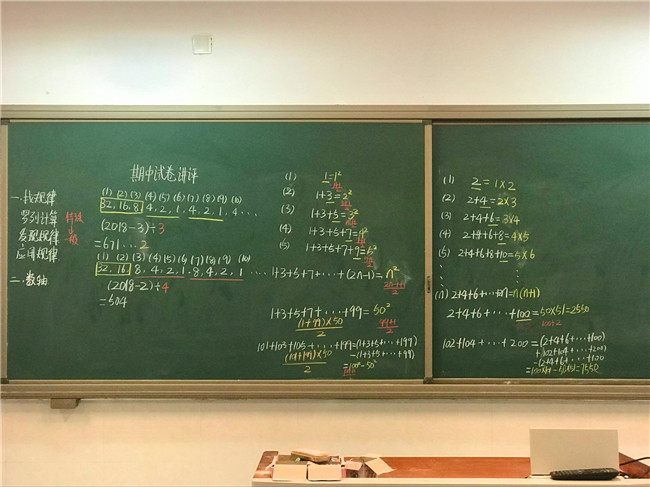 期中试卷讲评
一.找规律
罗列计算
发现规律
应用规律
特殊
一般
二.数轴
(1) (2) (3) (4) (5) (6) (7) (8) (9) (10)
32, 16, 8, 4, 2, 1, 4, 2, 1, 4 …
(2018-3)÷3
=671…2
(1) (2) (3) (4) (5) (6) (7) (8) (9) (10)
32, 16, 8, 4, 2, 1, 8, 4, 2, 1 …
(2018-2)÷4
=504
(1) 1=1²
(2) 1+3=2²
(3) 1+3+5=3²
(4) 1+3+5+7=4²
(5) 1+3+5+7+9=5²
1+3+5+7+…+(2n-1)=n²
1+3+5+7+…+99=50²
(1+99)×50
2
99+1
2
101+103+105+…+199=(1+3+5+…+199)
-(1+3+5+…+99)
=100²-50²
(101+199)×50
2
(1) 2=1×2
(2) 2+4=2×3
(3) 2+4+6=3×4
(4) 2+4+6+8=4×5
(5) 2+4+6+8+10=5×6
(n) 2+4+6+…=n(n+1)
2+4+6+…+100=50×51=2550
100÷2
102+104+…+200=(2+4+…+100
+102+104+…+200)
-(2+4+…+100
=7550